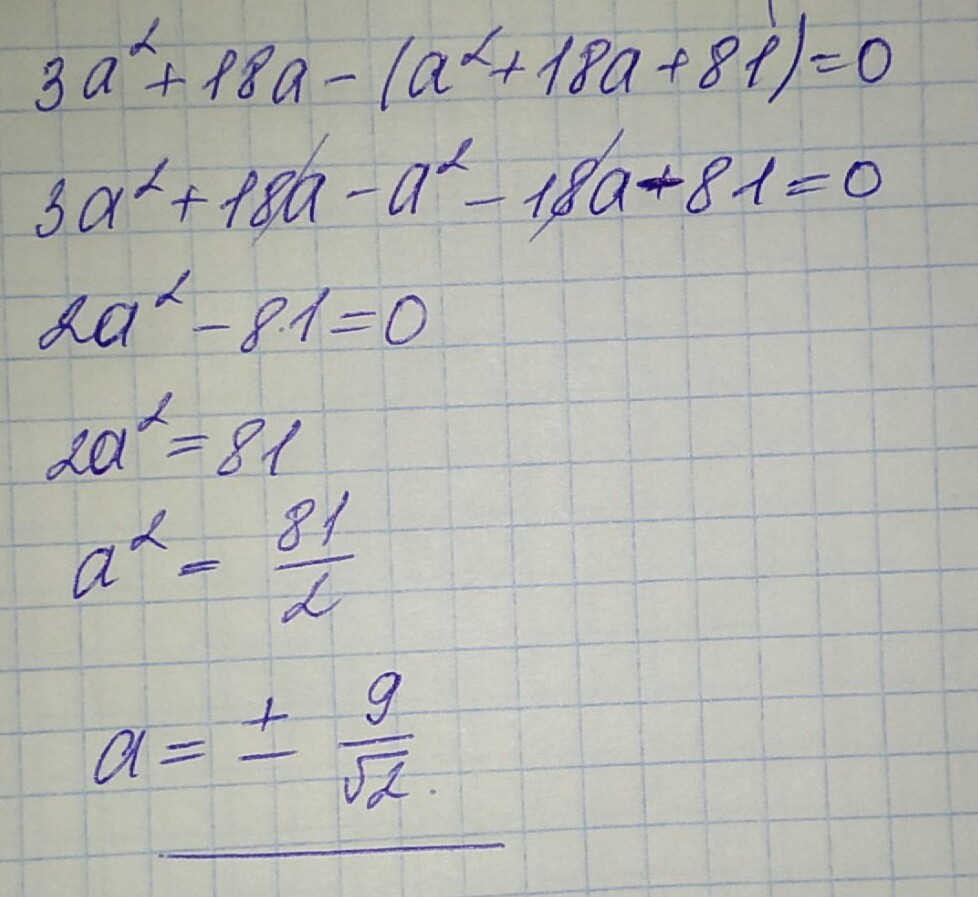 3a² + 18a - (a² + 18a + 81) = 0
3a² + 18a - a² - 18a - 81 = 0
2a² - 81 = 0
2a² = 81
a² = 81/2
a = ± 9/√2.